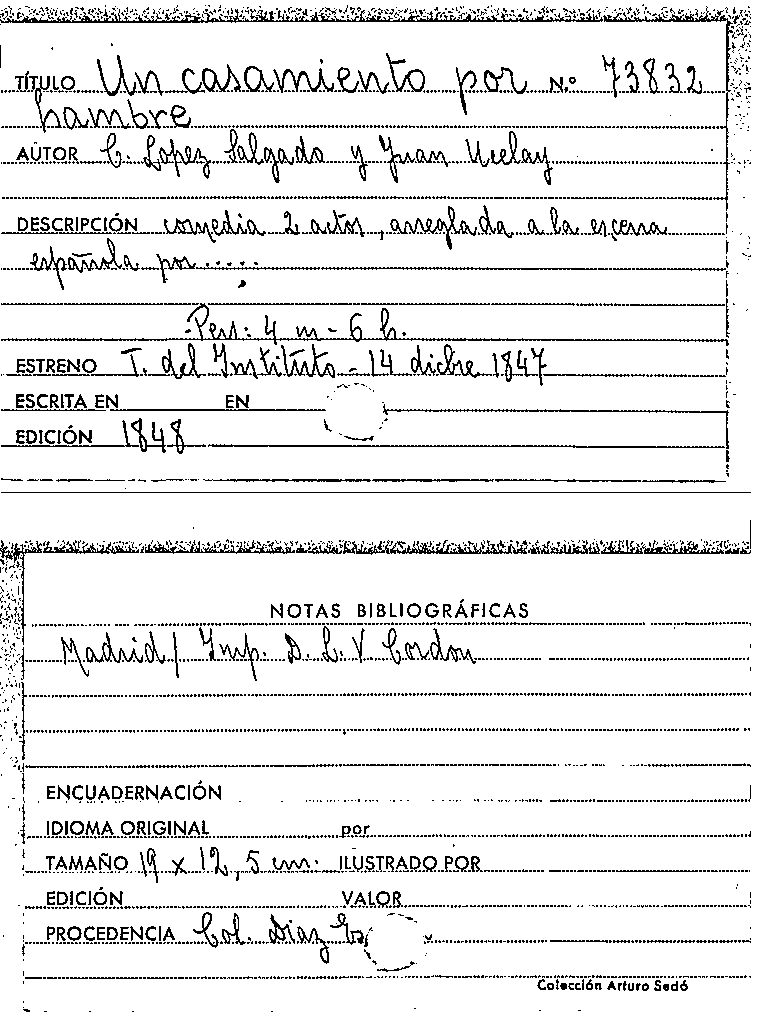 TÍTULO Un casamiento por N.º 73832
hambre
AUTOR C. Lopez Salgado y Juan Ucelay
DESCRIPCIÓN comedia 2 actos, arreglada a la escena
española por.....
-Pers: 4 m - 6 h.
ESTRENO T. del Instituto - 14 dicbre 1847
ESCRITA EN EN
EDICIÓN 1848
NOTAS BIBLIOGRÁFICAS
Madrid / Imp. D. L. V. Cordon
ENCUADERNACIÓN
IDIOMA ORIGINAL por
TAMAÑO 19 x 12,5 cm. ILUSTRADO POR
EDICIÓN VALOR
PROCEDENCIA Col. Diaz
Colección Arturo Sedó